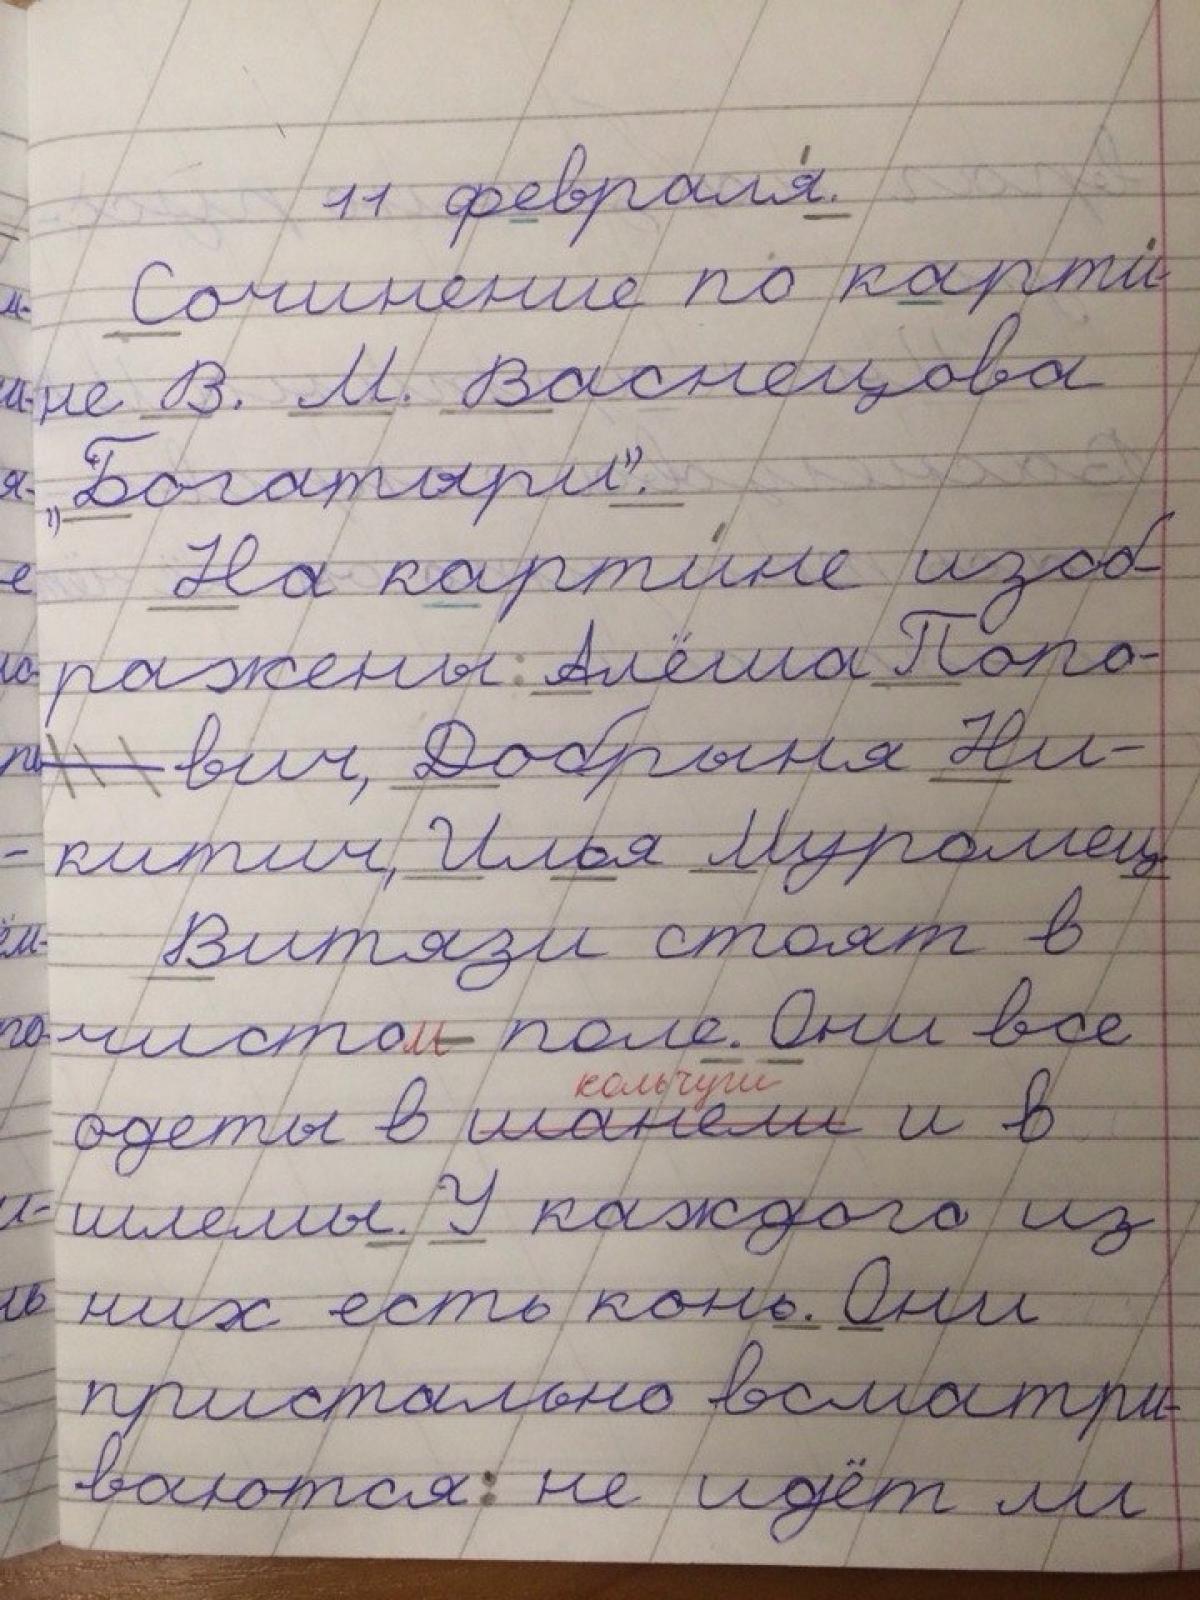 11 февраля.
Сочинение по карти-
не В. М. Васнецова
„Богатыри".
На картине изоб-
ражены: Алёша Попо-
вич, Добрыня Ни-
китич, Илья Муромец
Витязи стоят в
чистом поле. Они все
кольчуги
одеты в шанели и в
шлемы. У каждого из
них есть конь. Они
пристально всматри-
ваются: не идёт ли